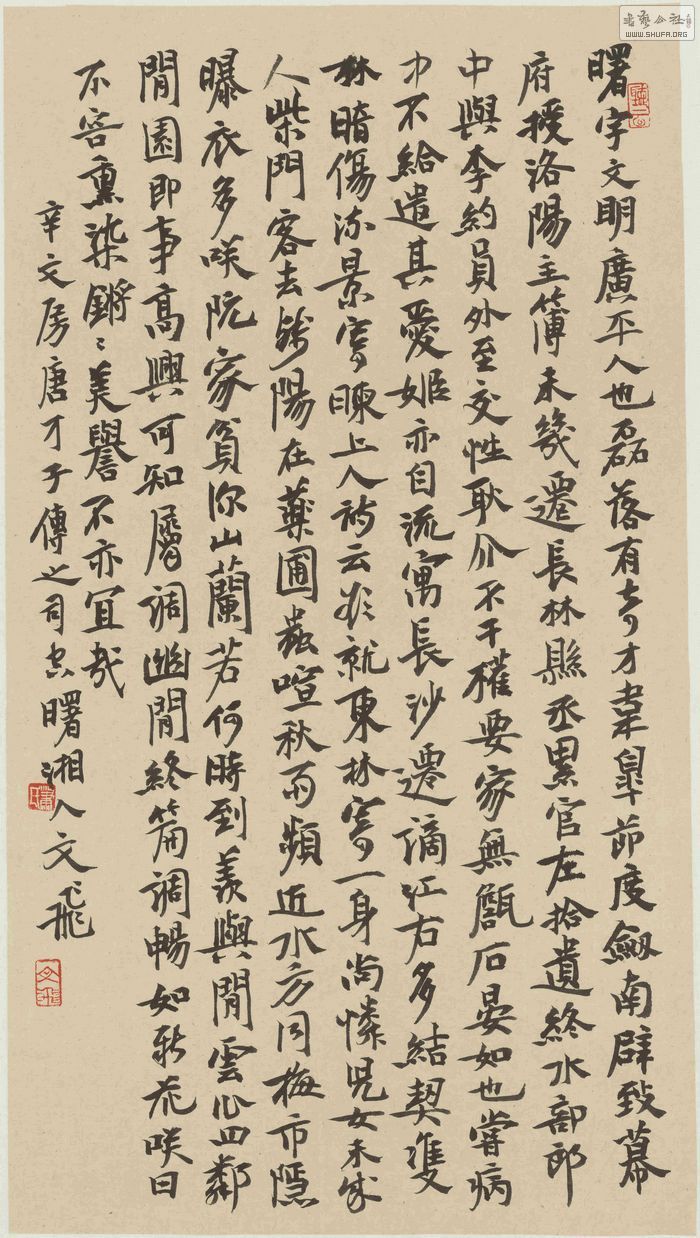 曙字文明廣平人也磊落有奇才韋皋節度劔南辟致幕
府授洛陽主簿未幾遷長林縣丞累官左拾遺終水部郎
中與李約員外至交性耿介不干權要家無甔石晏如也嘗病
中不給遣其愛姬亦自流寓長沙遷謫江右多結契雙
林暗傷流景寄暕上人詩云欲就東林寄一身尚憐兒女未成
人柴門客去殘陽在藥圃蟲喧秋雨頻近水方同梅市隱
曝衣多咲阮家貧深山蘭若何時到羨與閒雲作四鄰
閒園即事高興可知屬調幽閒終篇調暢如新花咲日
不容熏染鏘〻美譽不亦宜哉
辛文房唐才子傳之司空曙湘人文飛
文飛
書藝公社
WWW.SHUFA.ORG